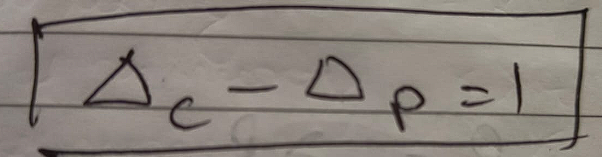 Δc - Δp = 1